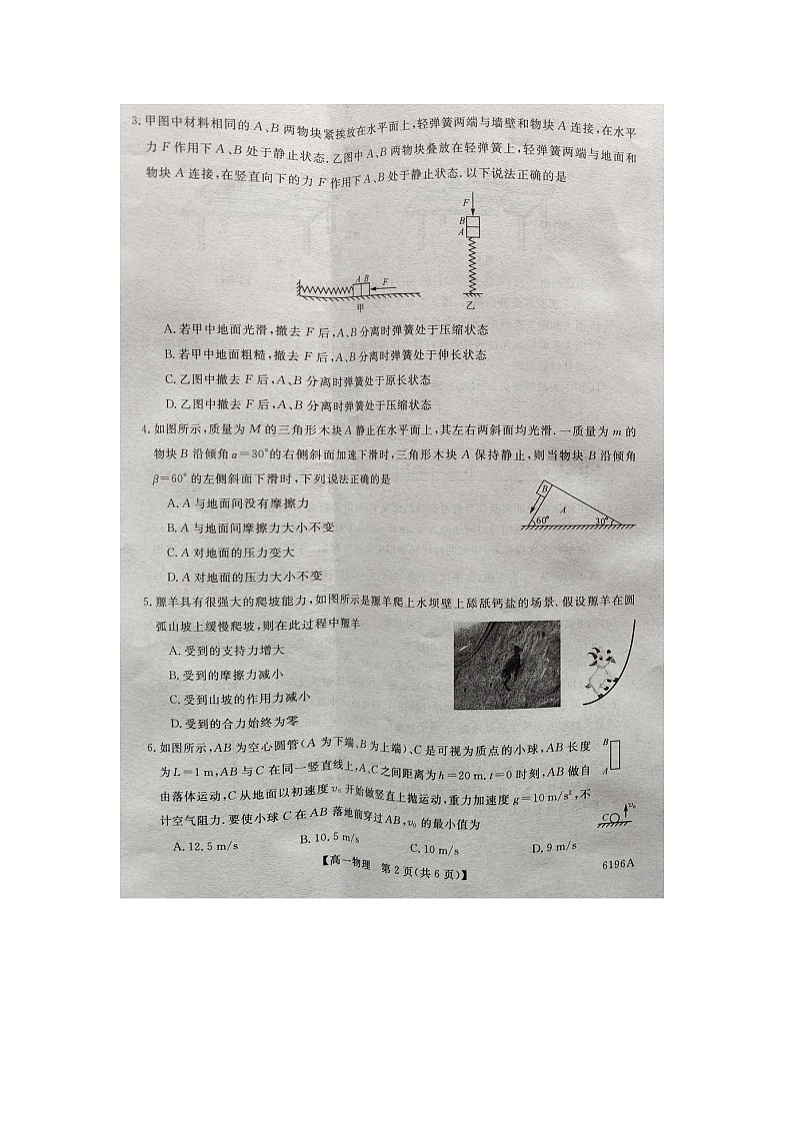 3. 甲图中材料相同的 A、B 两物块紧挨放在水平面上,轻弹簧两端与墙壁和物块 A 连接,在水平
力 F 作用下 A、B 处于静止状态. 乙图中 A、B 两物块叠放在轻弹簧上,轻弹簧两端与地面和
物块 A 连接,在竖直向下的力 F 作用下 A、B 处于静止状态. 以下说法正确的是
F
B
A
A B F
甲
乙
A. 若甲中地面光滑,撤去 F 后,A、B 分离时弹簧处于压缩状态
B. 若甲中地面粗糙,撤去 F 后,A、B 分离时弹簧处于伸长状态
C. 乙图中撤去 F 后,A、B 分离时弹簧处于原长状态
D. 乙图中撤去 F 后,A、B 分离时弹簧处于压缩状态
4. 如图所示,质量为 M 的三角形木块 A 静止在水平面上,其左右两斜面均光滑. 一质量为 m 的
物块 B 沿倾角 α=30°的右侧斜面加速下滑时,三角形木块 A 保持静止,则当物块 B 沿倾角
β=60° 的左侧斜面下滑时,下列说法正确的是
A. A 与地面间没有摩擦力
B. A 与地面间摩擦力大小不变
C. A 对地面的压力变大
D. A 对地面的压力大小不变
B
A
60° 30°
5. 羱羊具有很强大的爬坡能力,如图所示是羱羊爬上水坝壁上舔舐钙盐的场景. 假设羱羊在圆
弧山坡上缓慢爬坡,则在此过程中羱羊
A. 受到的支持力增大
B. 受到的摩擦力减小
C. 受到山坡的作用力减小
D. 受到的合力始终为零
6. 如图所示,AB 为空心圆管(A 为下端、B 为上端)、C 是可视为质点的小球,AB 长度
为 L=1 m,AB 与 C 在同一竖直线上,A、C 之间距离为 h=20 m. t=0 时刻,AB 做自
由落体运动,C 从地面以初速度 v₀ 开始做竖直上抛运动,重力加速度 g=10 m/s²,不
计空气阻力. 要使小球 C 在 AB 落地前穿过 AB,v₀ 的最小值为
B
A
C v₀
A. 12.5 m/s B. 10.5 m/s C. 10 m/s D. 9 m/s
【高一物理 第 2 页(共 6 页)】 6196A